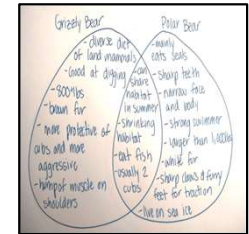 Grizzly Bear
Polar Bear
- diverse diet
of land mammals
- good at digging
- 800 lbs
- brown fur
- more protective of
cubs and more
aggressive
- hump of muscle on
shoulders
- can
share
habitat
in summer
- shrinking
habitat
- eat fish
- usually 2
cubs
- mainly
eats seals
- sharp teeth
- narrow face
and body
- strong swimmer
- larger than 1,000 lbs
- white fur
- sharp claws & furry
feet for traction
- live on sea ice